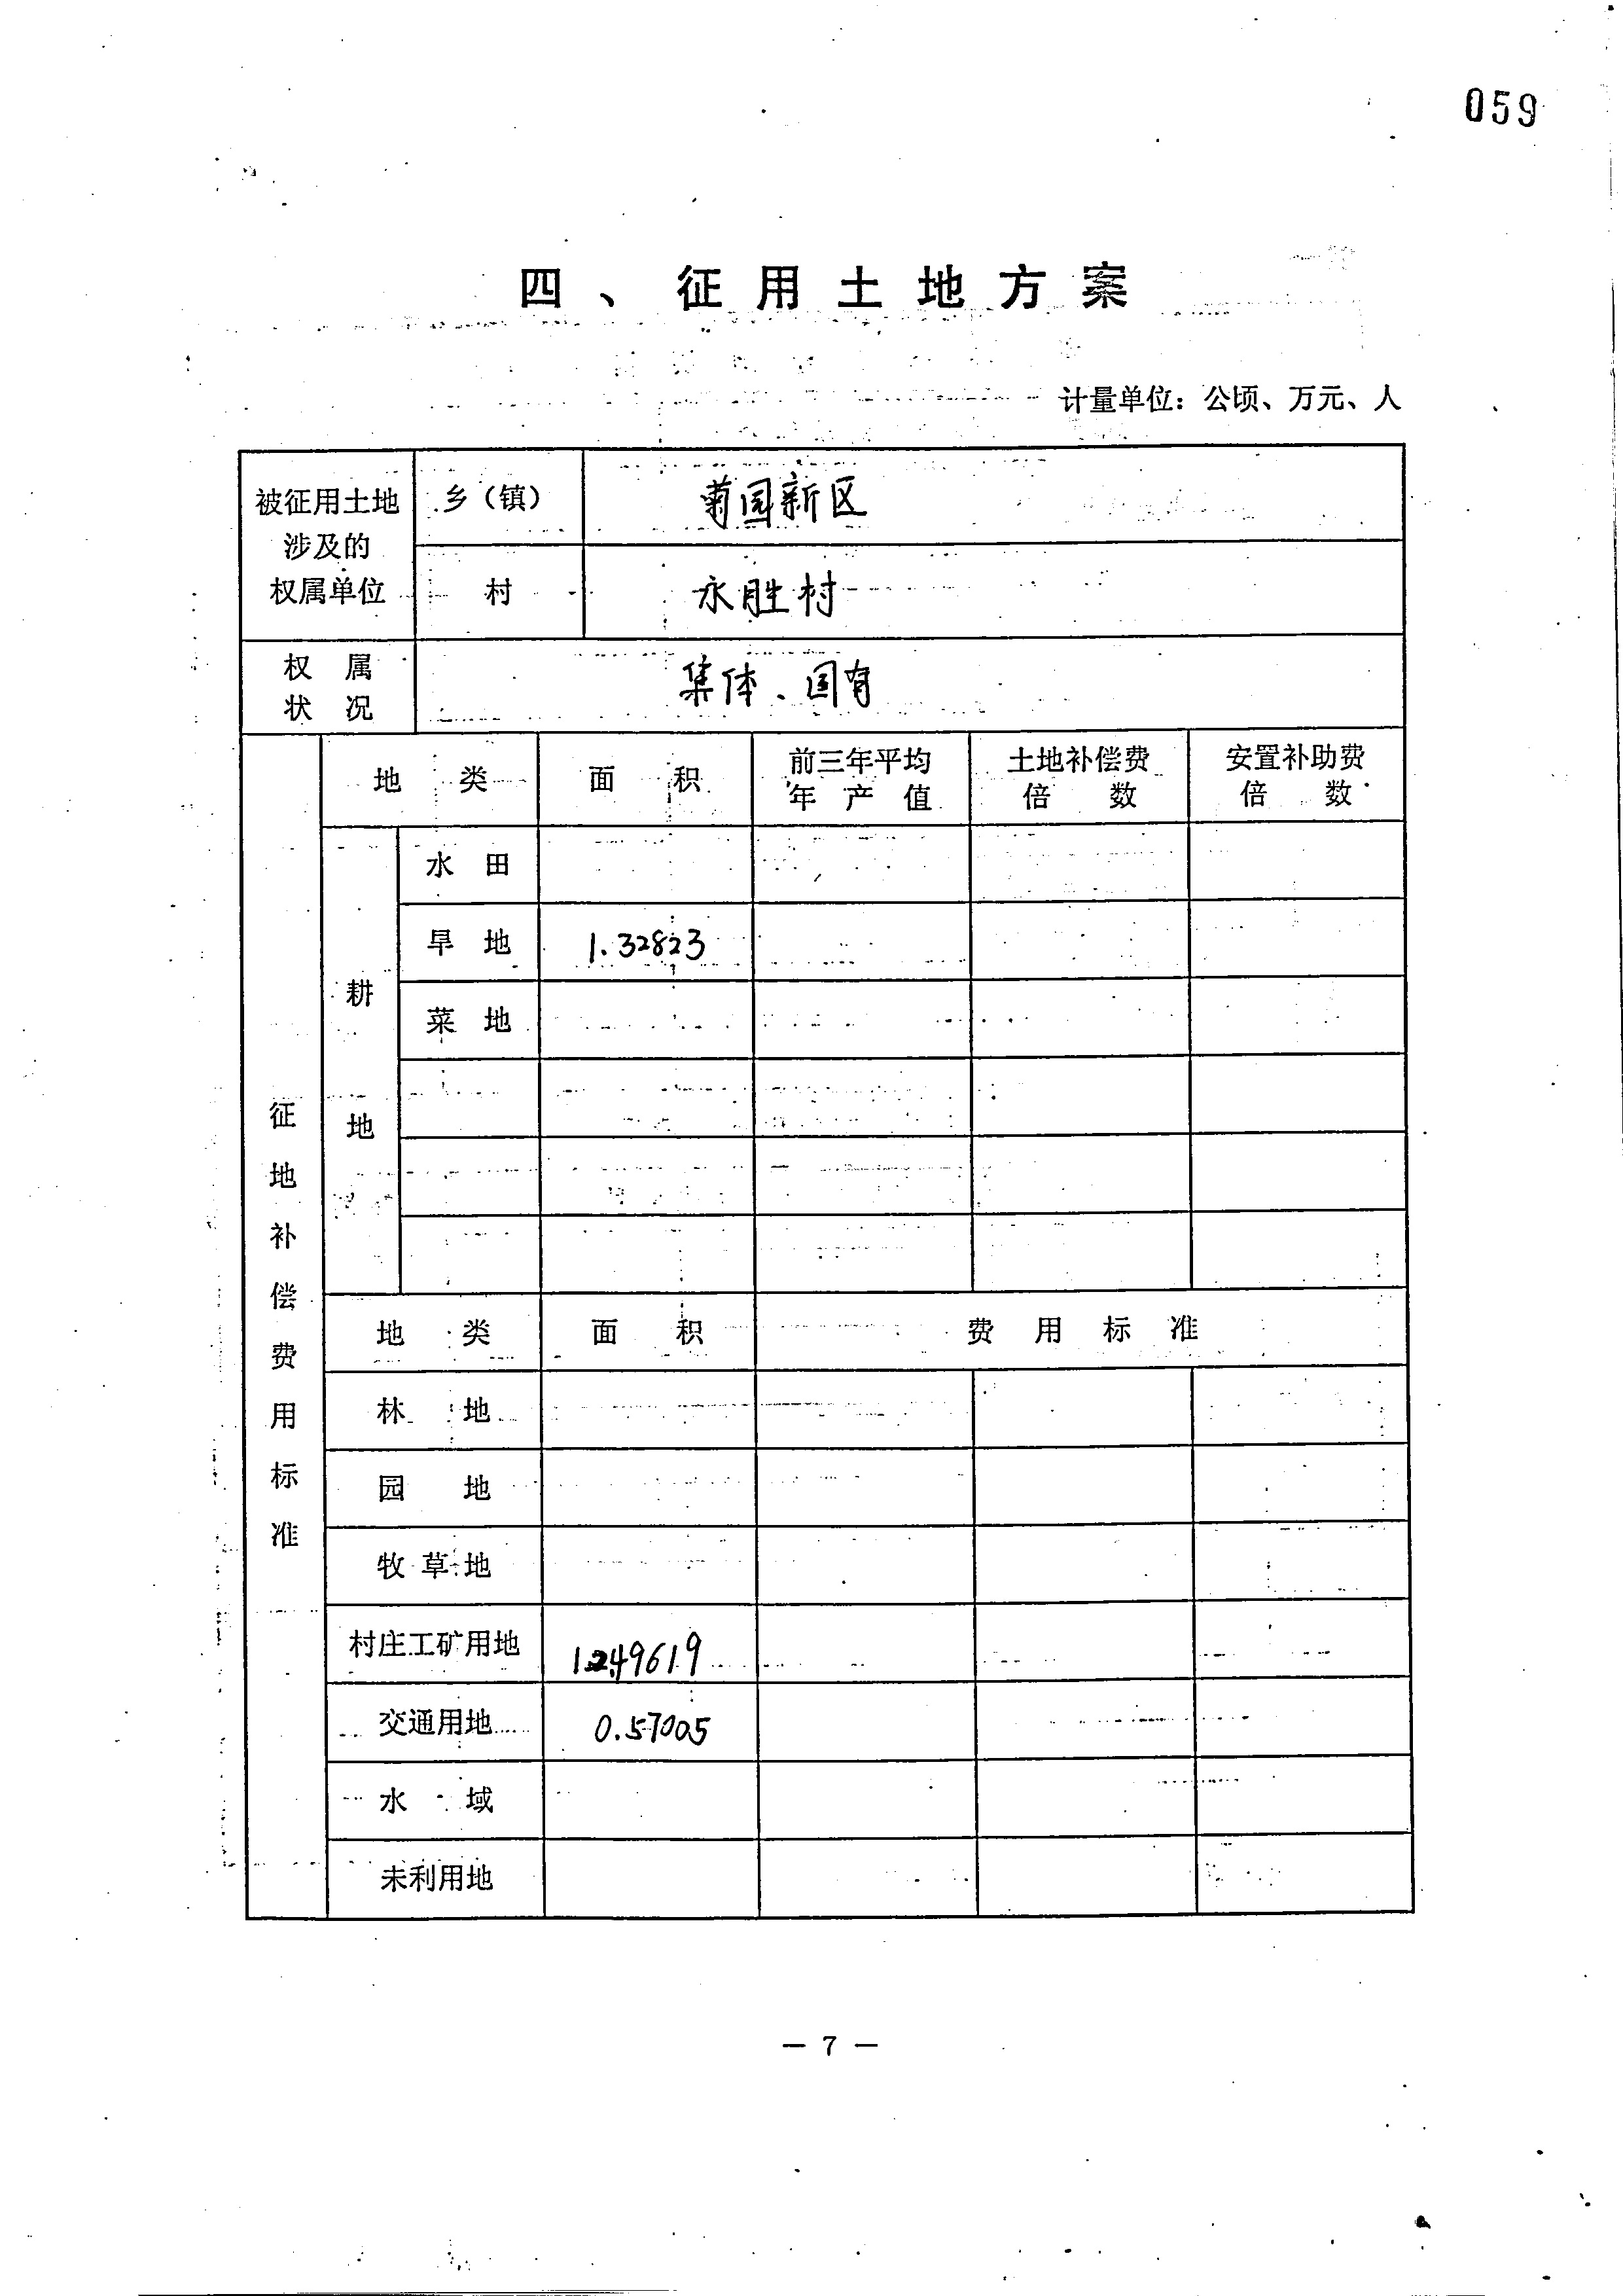 059
四、征用土地方案
计量单位：公顷、万元、人
被征用土地涉及的权属单位 乡（镇） 菊园新区
村 永胜村
权属状况 集体、国有
征地补偿费用标准
地类 面积 前三年平均年产值 土地补偿费倍数 安置补助费倍数
耕地
水田
旱地 1.32823
菜地
地类 面积 费用标准
林地
园地
牧草地
村庄工矿用地
交通用地 0.57005
水域
未利用地
— 7 —